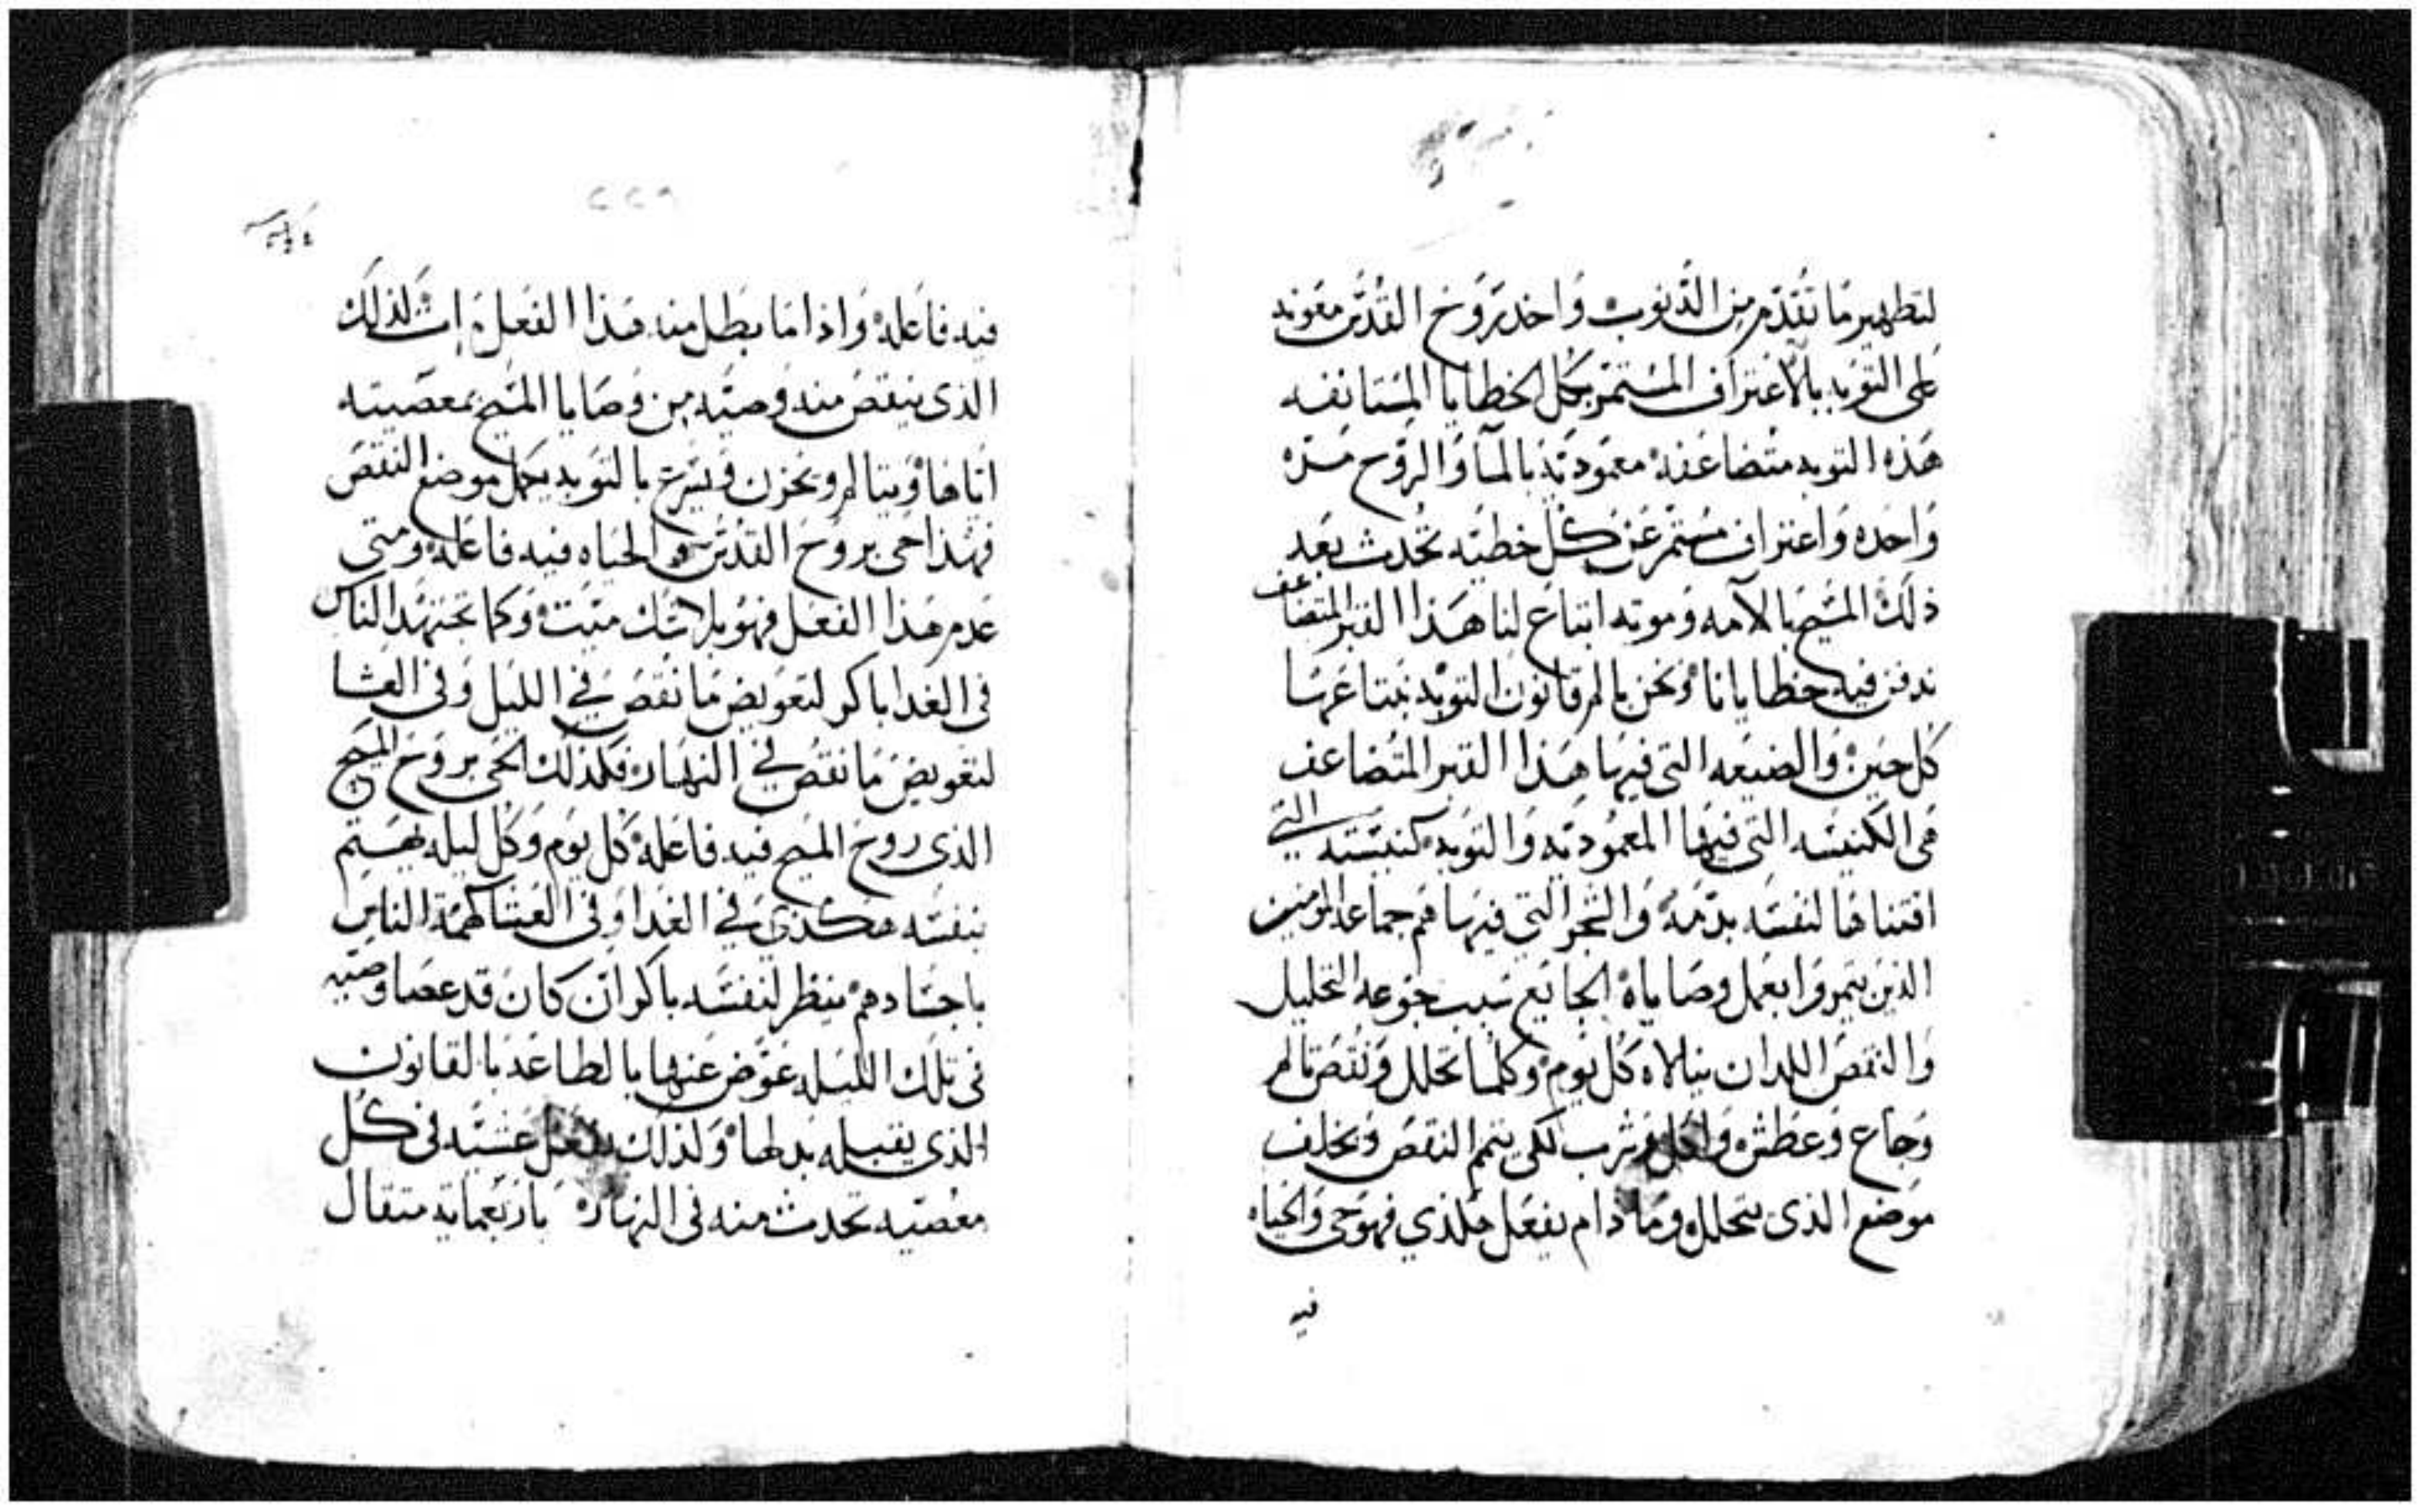 لتطهير ما تقدم من الذنوب واخد بروح القدس معونه
على التوبه بالاعتراف المستمر بكل الخطايا المستانفه
هذه التوبه متضاعفه معموديه بالما والروح مره
واحده واعتراف مستمر عن كل خطيه تحدث بعد
ذلك المسيح بالامه وموته ابتاع لنا هذا القبر المتضاعف
ندفن فيه خطايانا ونحن بالم قانون التوبه نبتاعها
كل حين والضيعه التى فيها هذا القبر المتضاعف
هى الكنيسه التى فيها المعموديه والتوبه كنيسته التي
اقتناها لنفسه بدمه والشجر التي فيها هم جماعه المومنين
الذين يثمروا بعمل وصاياه الجايع سبب جوعه التحليل
والنقص اللدان ينالاه كل يوم وكلما تحلل ونقص تالم
وجاع وعطش واكل وشرب لكى يتم النقص ويخلف
موضع الذى يتحلل وما دام يفعل هكذي فهو حى والحياه
فيه
٢٢٩
فيه فاعله واذا ما بطل منه هذا الفعل مات كذلك
الذى ينقص منه وصيه من وصايا المسيح بمعصيته
اياها ويتالم ويحزن ويسرع بالتوبه يكمل موضع النقص
فهذا حى بروح القدس والحياه فيه فاعله ومتى
عدم هذا الفعل فهو بلا شك ميت وكما تجتهد الناس
فى الغدا باكر لتعويض ما نقص في الليل وفى العشا
لتعويض ما نقص في النهار فكذلك الحى بروح المسيح
الذى روح المسيح فيه فاعله كل يوم وكل ليله يهتم
بنفسه هكذي في الغدا وفى العشا كهمة الناس
باجسادهم ينظر لنفسه باكر ان كان قد عصا وصيه
فى تلك الليله عوض عنها بالطاعه بالقانون
الذى يقبله بدلها ولذلك يفعل عشيه فى كل
معصيه تحدث منه فى النهار باربعمايه مثقال